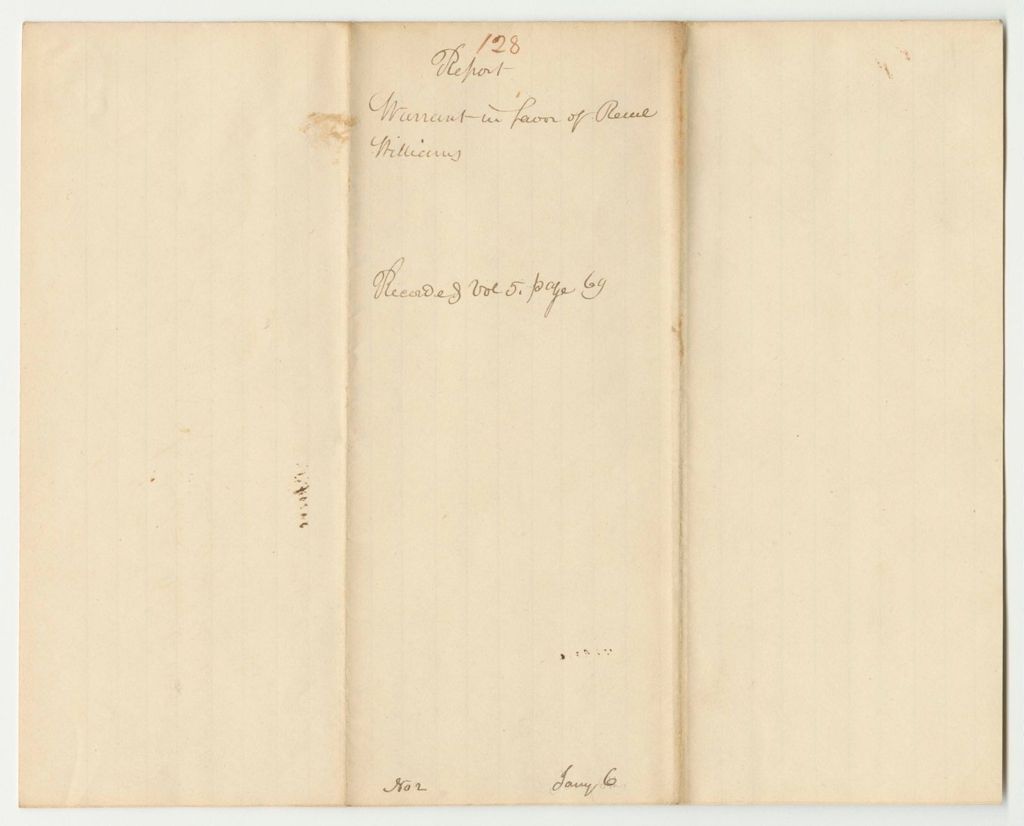 128
Report
Warrant in favor of Reuel
Williams
Recorded Vol 5. page 69
No 2 Jany 6